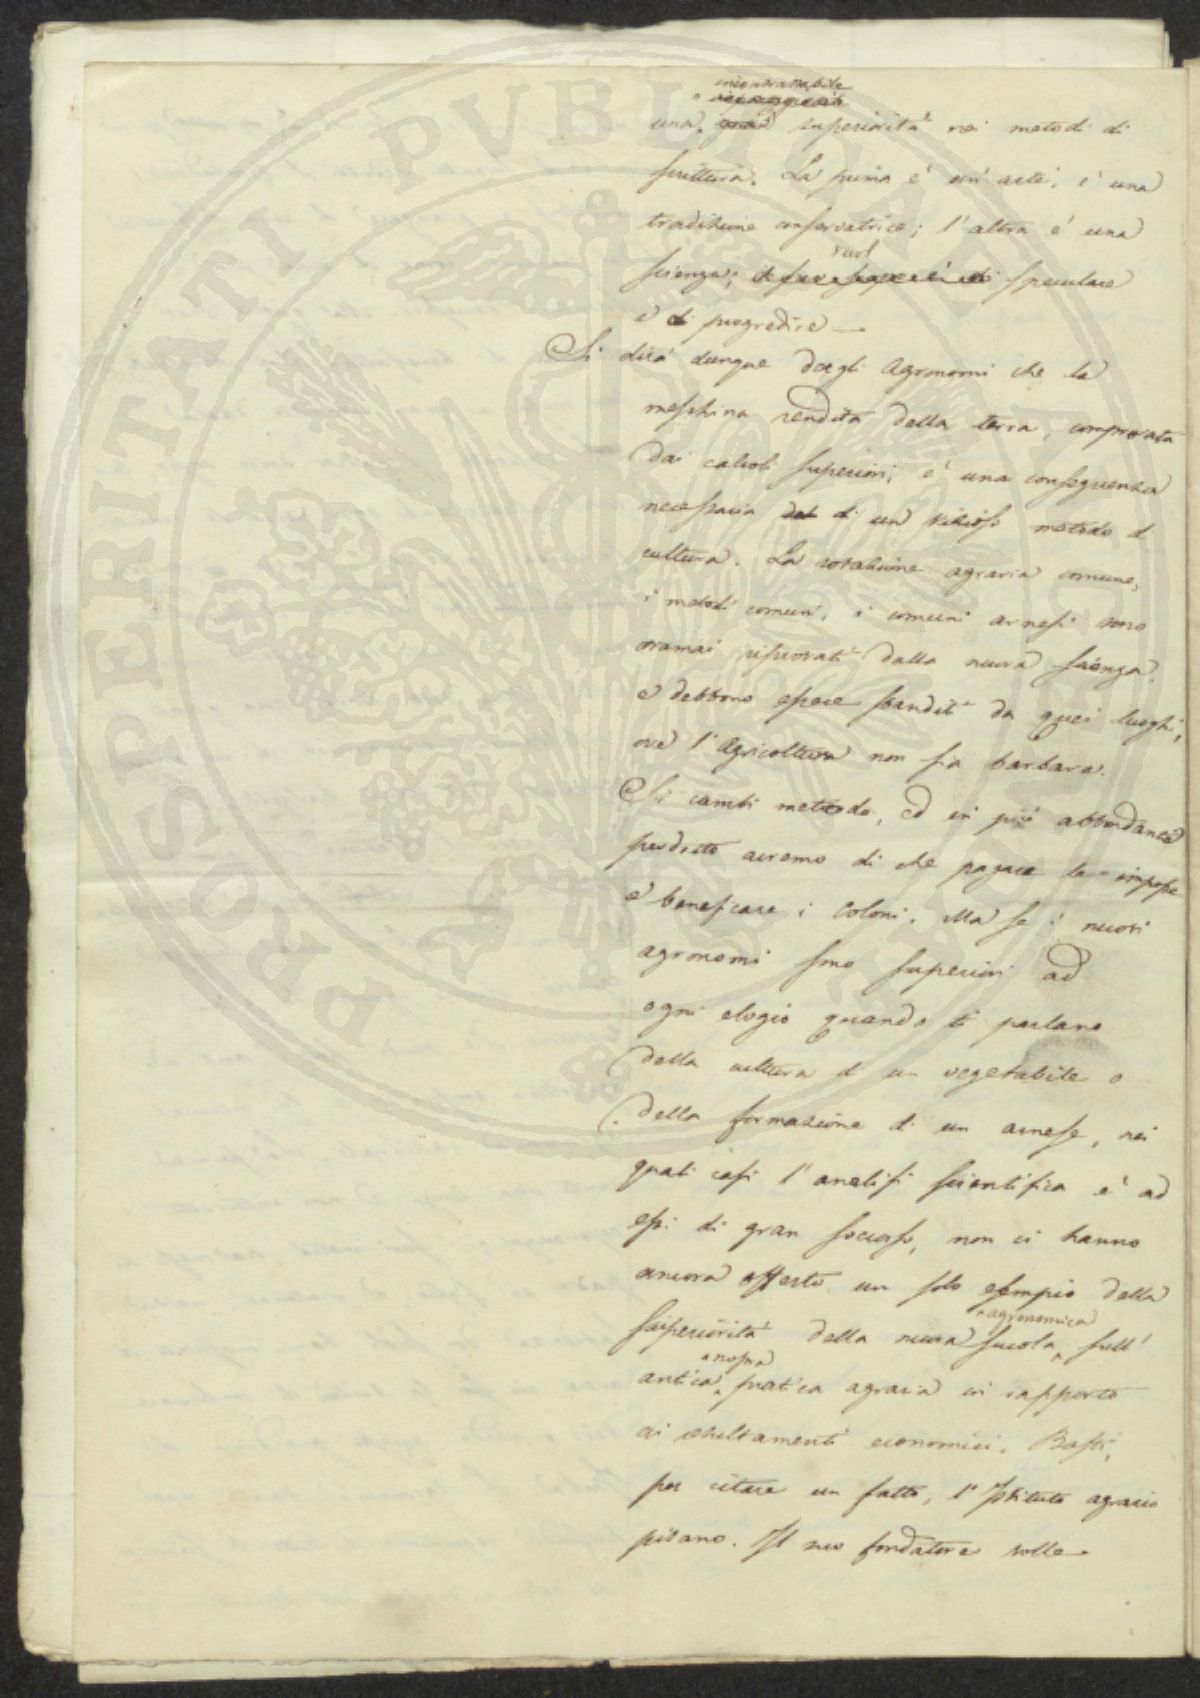 incontrastabile
una gran superiorità nei metodi di
scrittura. La prima è un'arte, è una
tradizione conservatrice; l'altra è una
vuol
scienza, speculare
e di progredire —
Si dirà dunque dagli Agronomi che la
meschina rendita della terra, comprovata
dai calcoli superiori, è una conseguenza
necessaria del di un vizioso metodo di
cultura. La rotazione agraria comune,
i metodi comuni, i comuni arnesi sono
oramai riprovati dalla nuova scienza,
e debbono essere banditi da quei luoghi,
ove l'Agricoltura non sia barbara.
Si cambi metodo, ed in più abbondante
prodotto avremo di che pagare le imposte
e beneficare i Coloni. Ma se i nuovi
agronomi sono superiori ad
ogni elogio quando ti parlano
della cultura di un vegetabile o
della formazione di un arnese, nei
quali casi l'analisi scientifica è ad
essi di gran soccorso, non ci hanno
ancora offerto un solo esempio della
agronomica
superiorità della nuova scuola sull'
nostra
antica pratica agraria in rapporto
ai resultamenti economici. Basti,
per citare un fatto, l'Istituto agrario
pisano. Il suo fondatore volle
PROSPERITATI PUBLICAE AUGENDAE